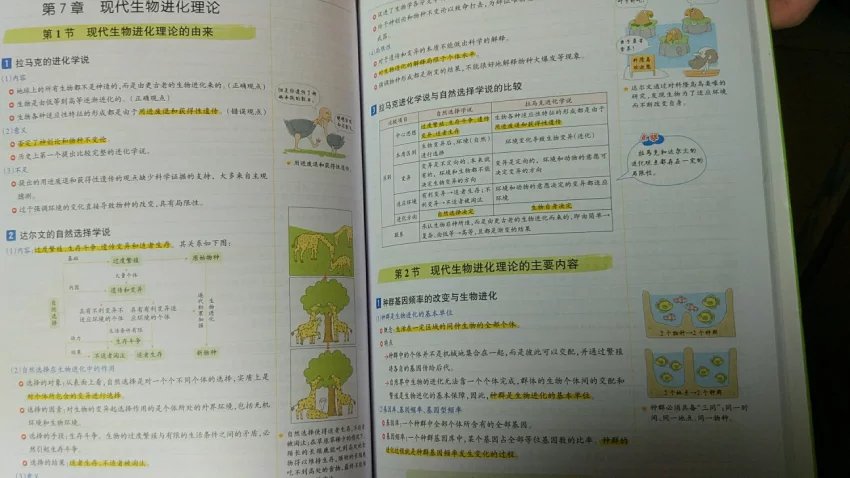 第7章 现代生物进化理论
第1节 现代生物进化理论的由来
1 拉马克的进化学说
(1)内容
地球上的所有生物都不是神造的,而是由更古老的生物进化来的。(正确观点)
生物是由低等到高等逐渐进化的。(正确观点)
生物各种适应性特征的形成都是由于用进废退和获得性遗传。(错误观点)
(2)意义
否定了神创论和物种不变论
历史上第一个提出比较完整的进化学说。
(3)不足
提出的用进废退和获得性遗传的观点缺少科学证据的支持,大多来自主观
推测。
过于强调环境的变化直接导致物种的改变,具有局限性。
用进废退和获得性遗传
2 达尔文的自然选择学说
(1)内容:过度繁殖、生存斗争、遗传变异和适者生存。其关系如下图:
基础 过度繁殖 原始物种
大量个体
内因 遗传和变异
自然选择
具有不利变异不 具有有利变异适
适应环境的个体 应环境的个体
逐代积累加强
生物进化
生活条件有限
动力 生存斗争
结果 不适者淘汰 适者生存 新物种
(2)自然选择在生物进化中的作用
选择的对象:从表面上看,自然选择是对一个个不同个体的选择,实质上是
对个体所包含的变异进行选择。
选择的因素:对生物的变异起选择作用的是个体所处的外界环境,包括无机
环境和生物环境。
选择的手段:生存斗争。生物的过度繁殖与有限的生活条件之间的矛盾,必
然引起生存斗争。
选择的结果:适者生存,不适者被淘汰
(3)意义
(4)局限性
对于遗传和变异的本质不能做出科学的解释。
对生物进化的解释局限于个体水平。
强调物种形成都是渐变的结果,不能很好地解释物种大爆发等现象。
达尔文通过对科隆岛鸟喙的
研究,发现生物为了适应环境
而不断改变自身。
3 拉马克进化学说与自然选择学说的比较
比较项目 自然选择学说 拉马克进化学说
中心思想 过度繁殖、生存斗争、遗传变异、适者生存 生物各种适应性特征的形成都是由于用进废退和获得性遗传
区别 生物变异后,环境(自然)进行选择 环境变化导致生物变异(进化)
变异 变异是不定向的,本来就有的,环境和生物都不能决定生物变异的方向 变异是定向的,环境和动物的意愿可决定变异的方向
适应环境 有利变异→适者生存;不利变异→不适者被淘汰 环境和动物的意愿决定的变异都适应环境
进化方向 自然选择决定 生物自身决定
联系 承认生物非神所造,而是由更古老的生物进化而来的,即由简单→复杂、由低等→高等,且都是渐变的结果
拉马克和达尔文的
进化观点都存在一定的
局限性。
第2节 现代生物进化理论的主要内容
1 种群基因频率的改变与生物进化
(1)种群是生物进化的基本单位
概念:生活在一定区域的同种生物的全部个体。
特点
种群中的个体并不是机械地集合在一起,而是彼此可以交配,并通过繁殖
将各自的基因传给后代。
自然界中生物的进化无法靠一个个体完成,群体的生物个体间的交配和
繁殖是生物进化的基本保障,因此,种群是生物进化的基本单位。
(2)基因库、基因频率、基因型频率
基因库:一个种群中全部个体所含有的全部基因。
基因频率:一个种群基因库中,某个基因占全部等位基因数的比率。种群的
进化过程就是种群基因频率发生变化的过程。
2个物种→2个种群
2个地点→2个种群
种群必须具备“三同”:同一时
间、同一地点、同一物种。